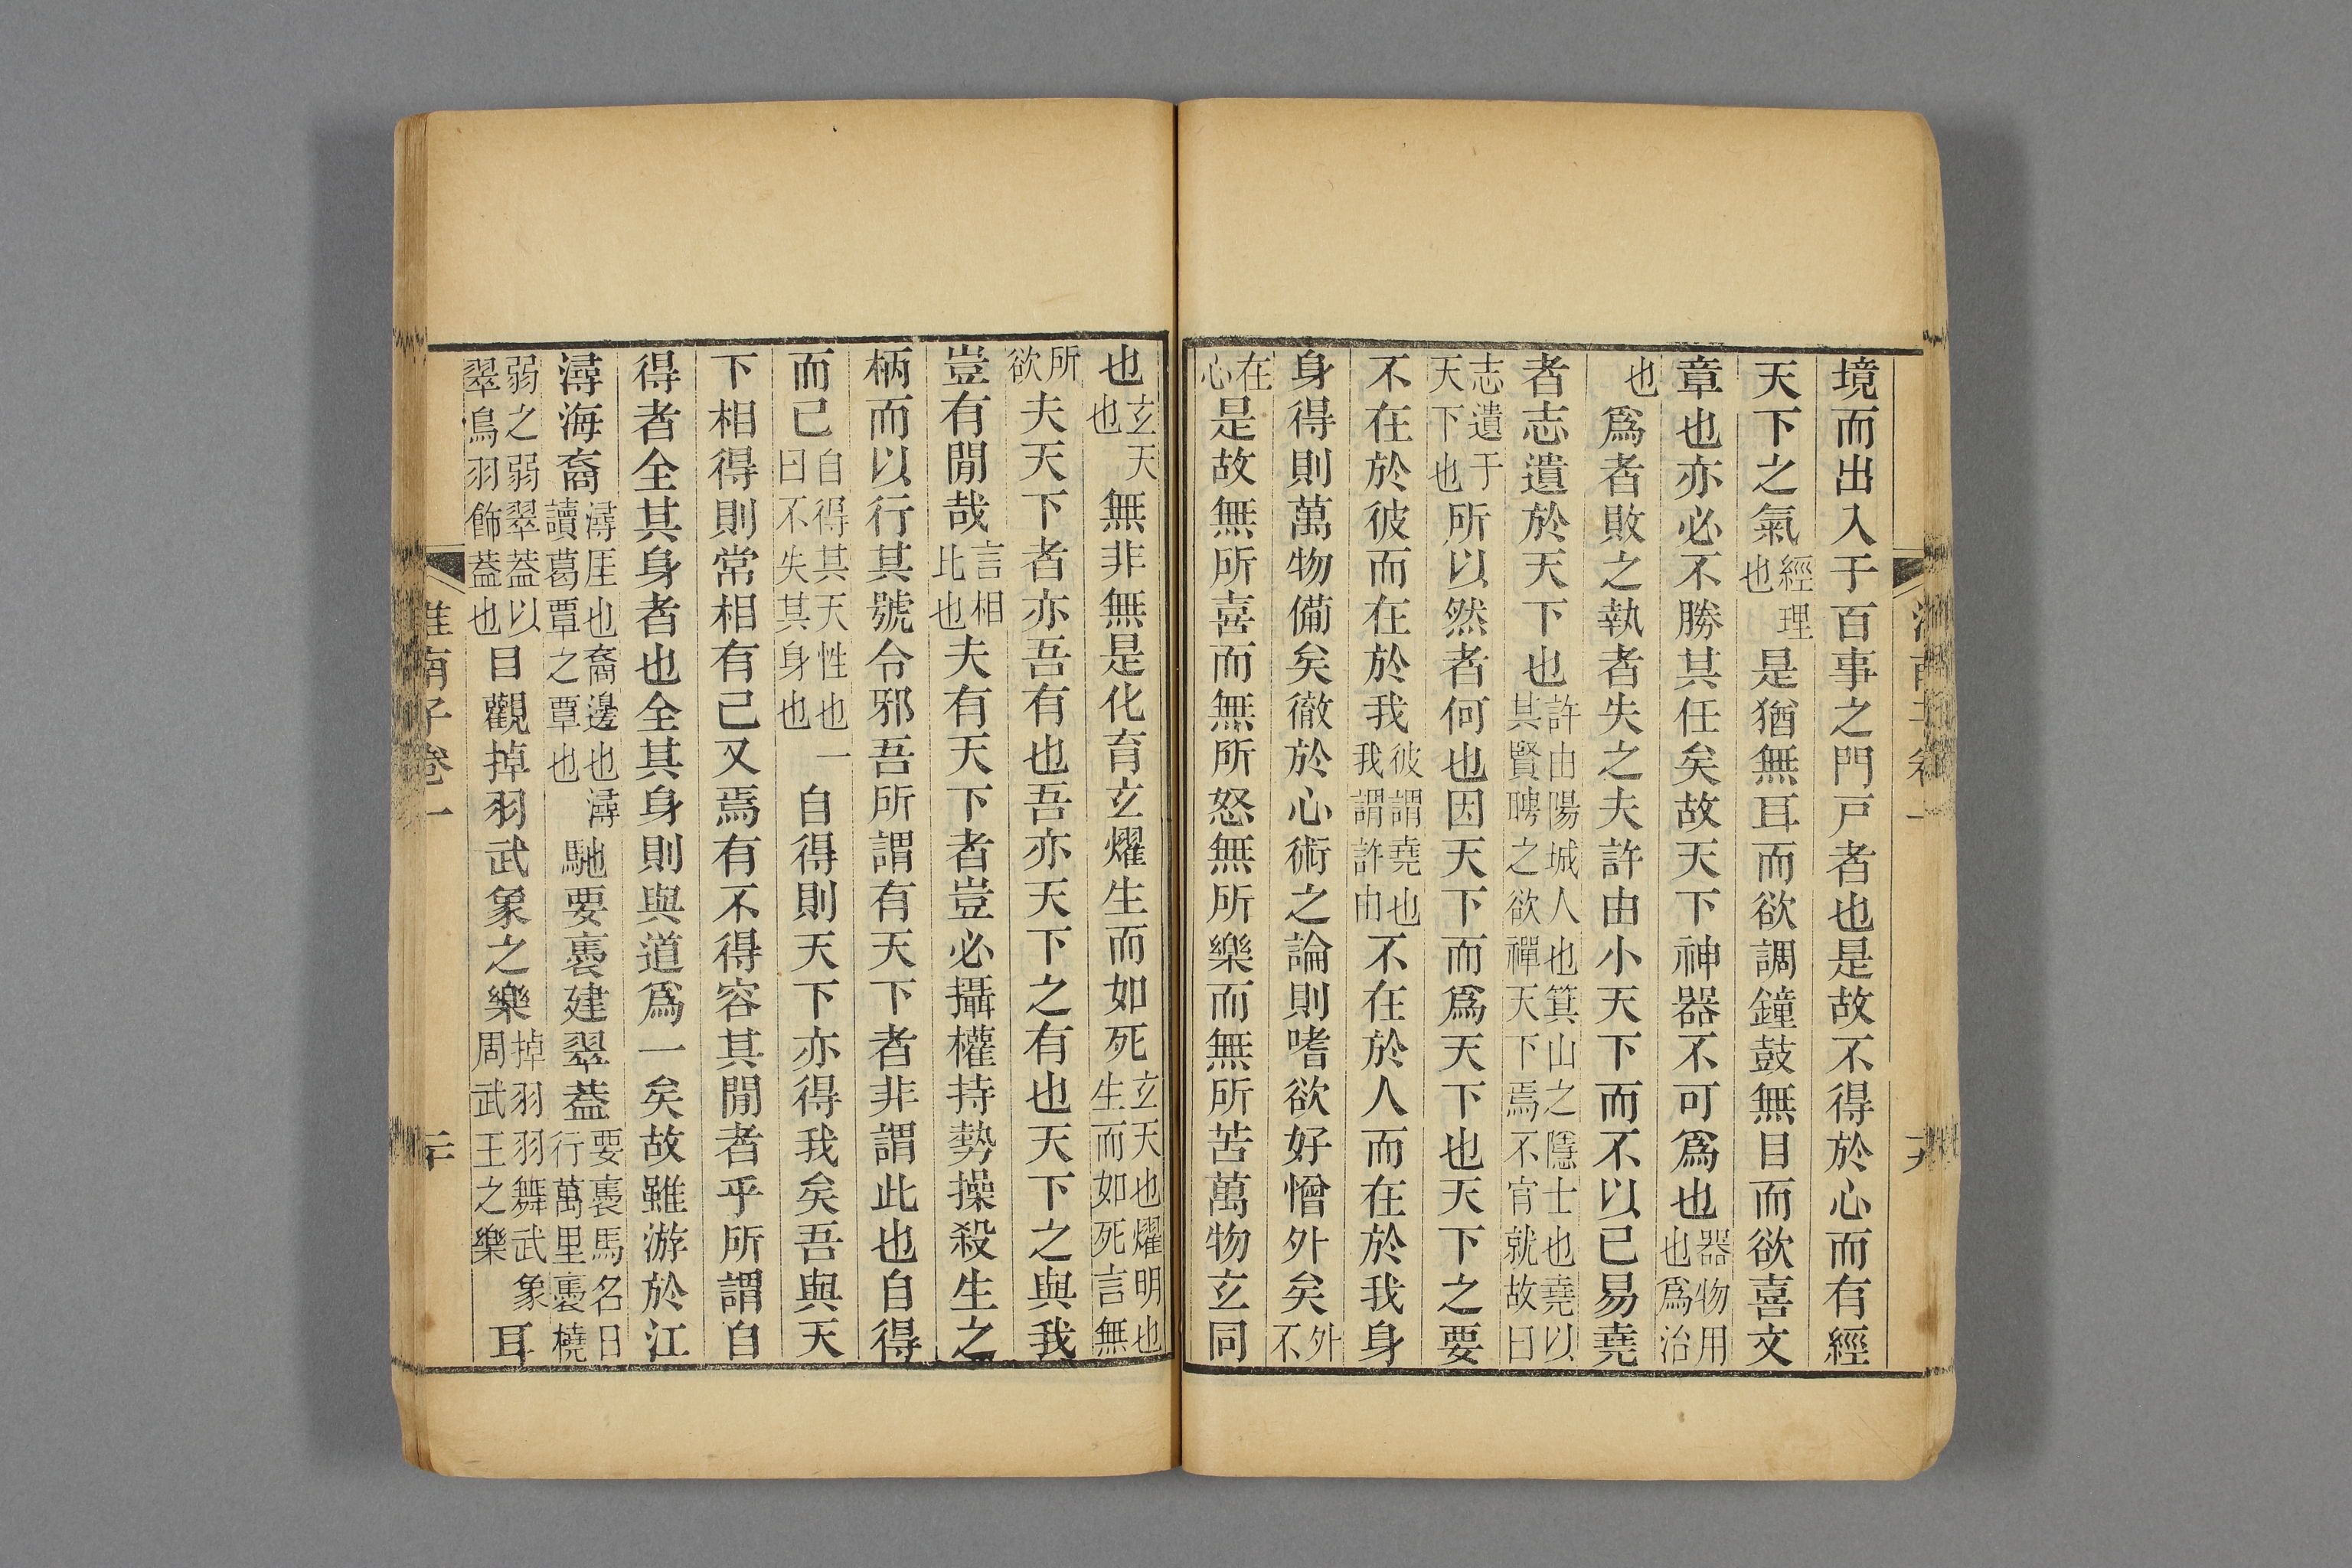 境而出入于百事之門戸者也是故不得於心而有經
天下之氣經理也是猶無耳而欲調鐘鼓無目而欲喜文
章也亦必不勝其任矣故天下神器不可爲也器物用也爲治
也爲者敗之執者失之夫許由小天下而不以已易堯
者志遺於天下也許由陽城人也箕山之隱士也堯以其賢聘之欲禪天下焉不肎就故曰
志遺于天下也所以然者何也因天下而爲天下也天下之要
不在於彼而在於我彼謂堯也我謂許由不在於人而在於我身
身得則萬物備矣徹於心術之論則嗜欲好憎外矣外不
在心是故無所喜而無所怒無所樂而無所苦萬物玄同
也玄天也無非無是化育玄燿生而如死玄天也燿明也生而如死言無
所欲夫天下者亦吾有也吾亦天下之有也天下之與我
豈有閒哉言相此也夫有天下者豈必攝權持勢操殺生之
柄而以行其號令邪吾所謂有天下者非謂此也自得
而已自得其天性也一曰不失其身也自得則天下亦得我矣吾與天
下相得則常相有已又焉有不得容其閒者乎所謂自
得者全其身者也全其身則與道爲一矣故雖游於江
潯海裔潯厓也裔邊也潯讀葛覃之覃也馳要褭建翠葢要褭馬名日行萬里褭橈
弱之弱翠葢以翠鳥羽飾葢也目觀掉羽武象之樂掉羽羽舞武象周武王之樂耳
淮南子卷一
二十